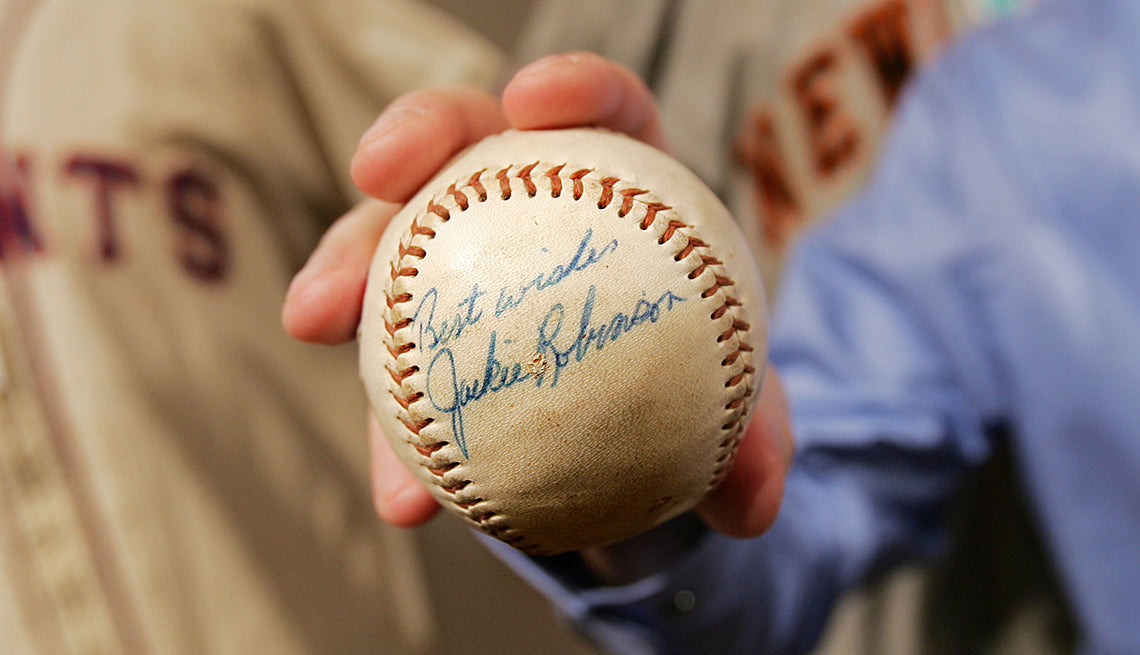 Best wishes
Jackie Robinson
NTS
NEW